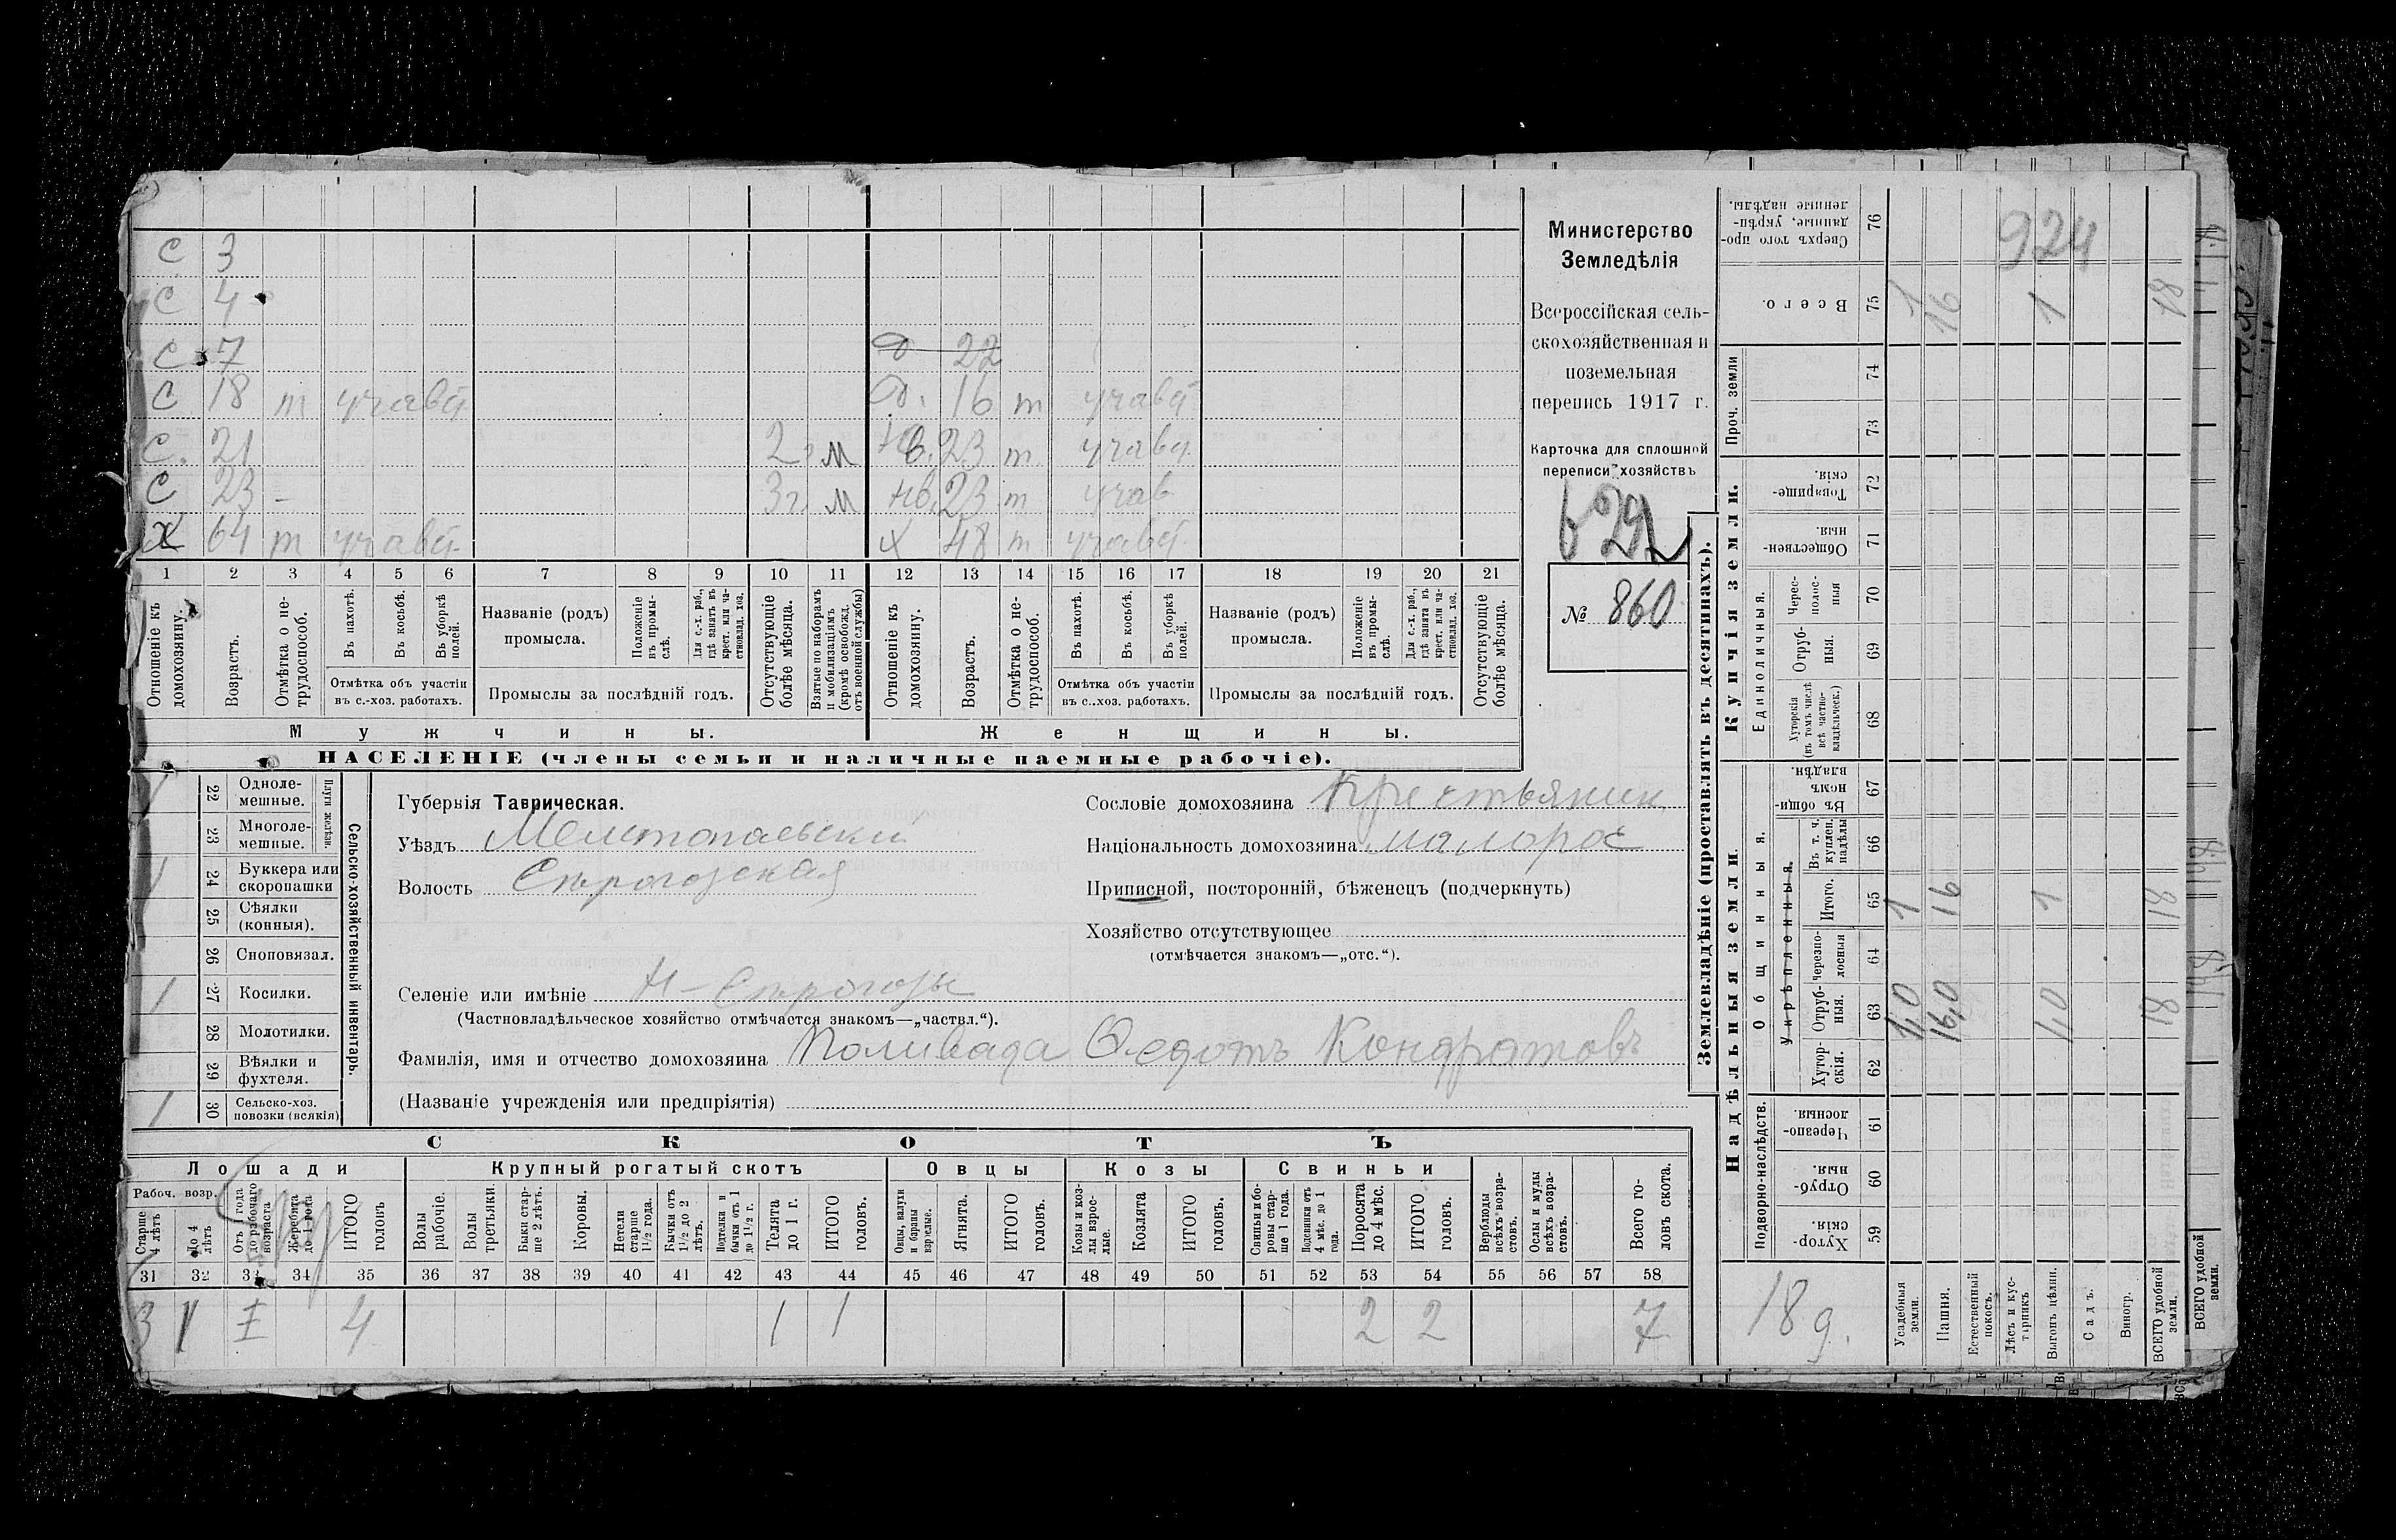 С 3
С 4
С 7 22
С 18 т участв. 16 т участв.
С. 21 2 г. м 23 т участв.
С 23 - 3 г. м нв. 23 т участв.
Х 64 т участв. х 48 т участв.
1 2 3 4 5 6 7 8 9 10 11 12 13 14 15 16 17 18 19 20 21
Отношеніе къ домохозяину.
Возрастъ.
Отмѣтка о нетрудоспособ.
Въ пахотѣ.
Въ косьбѣ.
Въ уборкѣ полей.
Отмѣтка объ участіи въ с.-хоз. работахъ.
Названіе (родъ) промысла.
Положеніе въ промыслѣ.
Для с.-х. раб., гдѣ занятъ въ крест. или частновлад. хоз.
Промыслы за послѣдній годъ.
Отсутствующіе болѣе мѣсяца.
Взятые по наборамъ и мобилизаціямъ (кромѣ освобожд. отъ военной службы)
Отношеніе къ домохозяину.
Возрастъ.
Отмѣтка о нетрудоспособ.
Въ пахотѣ.
Въ косьбѣ.
Въ уборкѣ полей.
Отмѣтка объ участіи въ с.-хоз. работахъ.
Названіе (родъ) промысла.
Положеніе въ промыслѣ.
Для с.-х. раб., гдѣ занята въ крест. или частновлад. хоз.
Промыслы за послѣдній годъ.
Отсутствующіе болѣе мѣсяца.
Мужчины. Женщины.
НАСЕЛЕНІЕ (члены семьи и наличные наемные рабочіе).
Министерство
Земледѣлія
Всероссійская сель-
скохозяйственная и
поземельная
перепись 1917 г.
Карточка для сплошной
переписи хозяйствъ
№ 860
22 Одноле-
мешные.
23 Многоле-
мешные.
Плуги желѣзн.
24 Буккера или
скоропашки
25 Сѣялки
(конныя).
26 Сноповязал.
27 Косилки.
28 Молотилки.
29 Вѣялки и
фухтеля.
30 Сельско-хоз.
повозки (всякія)
Сельско-хозяйственный инвентарь.
Губернія Таврическая.
Уѣздъ Мелитопольски
Волость Сѣрогозская
Селеніе или имѣніе Н-Сѣрогозы
(Частновладѣльческое хозяйство отмѣчается знакомъ—„частвл.“).
Фамилія, имя и отчество домохозяина Поливода Ѳедотъ Кондратовъ
(Названіе учрежденія или предпріятія)
Сословіе домохозяина Крестьянин
Національность домохозяина малорос
Приписной, посторонній, бѣженецъ (подчеркнуть)
Хозяйство отсутствующее
(отмѣчается знакомъ—„отс.“).
СКОТЪ
Лошади Крупный рогатый скотъ Овцы Козы Свиньи
Рабоч. возр.
Старше 4 лѣтъ
До 4 лѣтъ
Отъ года до рабочаго возраста
Жеребята до 1 года
ИТОГО головъ
Волы рабочіе.
Волы третьяки.
Быки старше 2 лѣтъ.
Коровы.
Нетели старше 1½ года.
Бычки отъ 1½ до 2 лѣтъ.
Подтелки и бычки отъ 1 до 1½ г.
Телята до 1 г.
ИТОГО головъ.
Овцы, валухи и бараны взрослые.
Ягнята.
ИТОГО головъ.
Козы и козлы взрослые.
Козлята
ИТОГО головъ.
Свиньи и боровы старше 1 года.
Подсвинки отъ 4 мѣс. до 1 года.
Поросята до 4 мѣс.
ИТОГО головъ.
Верблюды всѣхъ возрастовъ.
Ослы и мулы всѣхъ возрастовъ.
Всего головъ скота.
31 32 33 34 35 36 37 38 39 40 41 42 43 44 45 46 47 48 49 50 51 52 53 54 55 56 57 58
3 1 4 1 1 2 2 7
Землевладѣніе (проставлять въ десятинахъ).
Надѣльныя земли. Купчія земли.
Подворно-наслѣдств. Общинныя. Единоличныя. Проч. земли
Укрѣпленныя.
Хуторскія. 59
Отрубныя. 60
Черезполосныя 61
Хуторскія. 62
Отрубныя. 63
Черезполосныя 64
Итого. 65
Въ т. ч. куплен. надѣлы 66
Въ общиномъ владѣн. 67
Хуторскія (въ томъ числѣ всѣ частновладѣльческ.) 68
Отрубныя. 69
Чересполосныя 70
Общественныя. 71
Товарищескія. 72
73
74
Всего. 75
Сверхъ того проданные, укрѣпленные надѣлы. 76
18 д.
Усадебныя земли. 1,0 1 1
Пашня. 16,0 16 16
Естественный покосъ.
Лѣсъ и кустарникъ.
Выгонъ цѣлин. 1,0 1 1
Садъ.
Виногр.
ВСЕГО удобной земли. 18 18 18
924
ВСЕГО удобной земли.